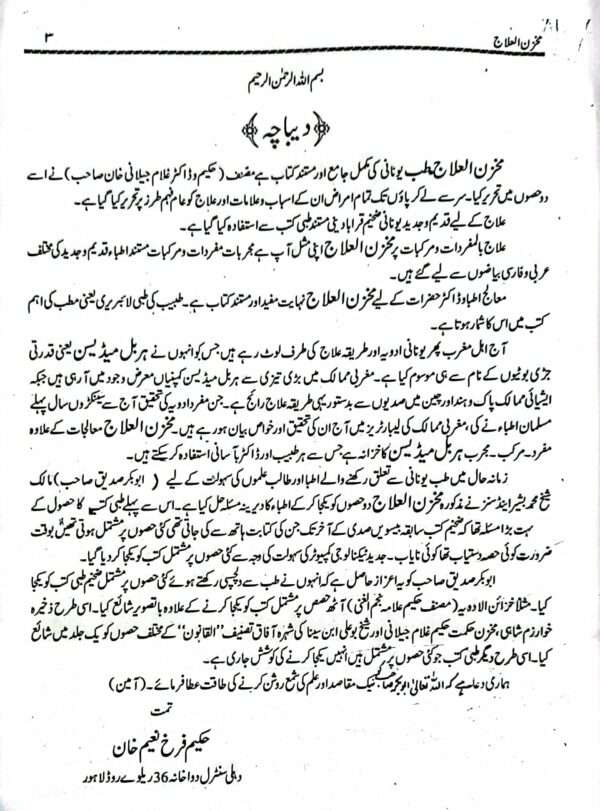 مخزن العلاج
۳
بسم اللہ الرحمٰن الرحیم
﴿دیباچہ﴾
مخزن العلاج طب یونانی کی مکمل جامع اور مستند کتاب ہے مصنف (حکیم و ڈاکٹر غلام جیلانی خان صاحب) نے اسے
دو حصوں میں تحریر کیا۔ سر سے لے کر پاؤں تک تمام امراض ان کے اسباب و علامات اور علاج کو عام فہم طرز پر تحریر کیا گیا ہے۔
علاج کے لیے قدیم و جدید یونانی ضخیم قرابادینی مستند طبی کتب سے استفادہ کیا گیا ہے۔
علاج بالمفردات و مرکبات پر مخزن العلاج اپنی مثل آپ ہے مجربات مفردات و مرکبات مستند اطباء قدیم و جدید کی مختلف
عربی و فارسی بیاضوں سے لیے گئے ہیں۔
معالج اطبا و ڈاکٹر حضرات کے لیے مخزن العلاج نہایت مفید اور مستند کتاب ہے۔ طبیب کی طبی لائبریری یعنی مطب کی اہم
کتب میں اس کا شمار ہوتا ہے۔
آج اہل مغرب پھر یونانی ادویہ اور طریقہ علاج کی طرف لوٹ رہے ہیں جس کو انہوں نے ہربل میڈیسن یعنی قدرتی
جڑی بوٹیوں کے نام سے ہی موسوم کیا ہے۔ مغربی ممالک میں بڑی تیزی سے ہربل میڈیسن کمپنیاں معرض وجود میں آ رہی ہیں جبکہ
ایشیائی ممالک پاک و ہند اور چین میں صدیوں سے بدستور یہی طریقہ علاج رائج ہے۔ جن مفرد ادویہ کی تحقیق آج سے سینکڑوں سال پہلے
مسلمان اطباء نے کی، مغربی ممالک کی لیبارٹریز میں آج ان کی تحقیق اور خواص بیان ہو رہے ہیں۔ مخزن العلاج معالجات کے علاوہ
مفرد۔ مرکب۔ مجرب ہربل میڈیسن کا خزانہ ہے جس سے ہر طبیب اور ڈاکٹر بآسانی استفادہ کر سکتے ہیں۔
زمانہ حال میں طب یونانی سے تعلق رکھنے والے اطبا اور طالب علموں کی سہولت کے لیے (ابوبکر صدیق صاحب) مالک
شیخ محمد بشیر اینڈ سنز نے مذکورہ مخزن العلاج دو حصوں کو یکجا کر کے اطباء کا دیرینہ مسئلہ حل کیا ہے۔ اس سے پہلے طبی کتب کا حصول کے
بہت بڑا مسئلہ تھا کہ ضخیم کتب سابقہ بیسویں صدی کے آخر تک جن کی کتابت ہاتھ سے کی جاتی تھی کئی حصوں پر مشتمل ہوتی تھیں بوقت
ضرورت کوئی حصہ دستیاب تھا کوئی نایاب۔ جدید ٹیکنالوجی کمپیوٹر کی سہولت کی وجہ سے کئی حصوں پر مشتمل کتب کو یکجا کر دیا گیا۔
ابوبکر صدیق صاحب کو یہ اعزاز حاصل ہے کہ انہوں نے طب سے دلچسپی رکھتے ہوئے کئی حصوں پر مشتمل ضخیم طبی کتب کو یکجا
کیا۔ مثلاً خزائن الادویہ (مصنف حکیم علامہ نجم الغنی) آٹھ حصص پر مشتمل کتب کو یکجا کرنے کے علاوہ با تصویر شائع کیا۔ اسی طرح ذخیرہ
خوارزم شاہی، مخزن حکمت حکیم غلام جیلانی اور شیخ بو علی ابن سینا کی شہرہ آفاق تصنیف "القانون" کے مختلف حصوں کو یک جلد میں شائع
کیا۔ اسی طرح دیگر طبی کتب جو کئی حصوں پر مشتمل ہیں انہیں یکجا کرنے کی کوشش جاری ہے۔
ہماری دعا ہے کہ اللہ تعالیٰ ابوبکر صاحب کو نیک مقاصد اور علم کی شمع روشن کرنے کی طاقت عطا فرمائے۔ (آمین)
تمت
حکیم فرخ نعیم خان
دہلی سنٹرل دواخانہ 36 ریلوے روڈ لاہور